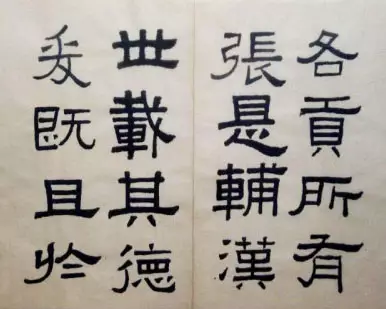 各貢所有
張是輔漢
世載其德
爰既且於